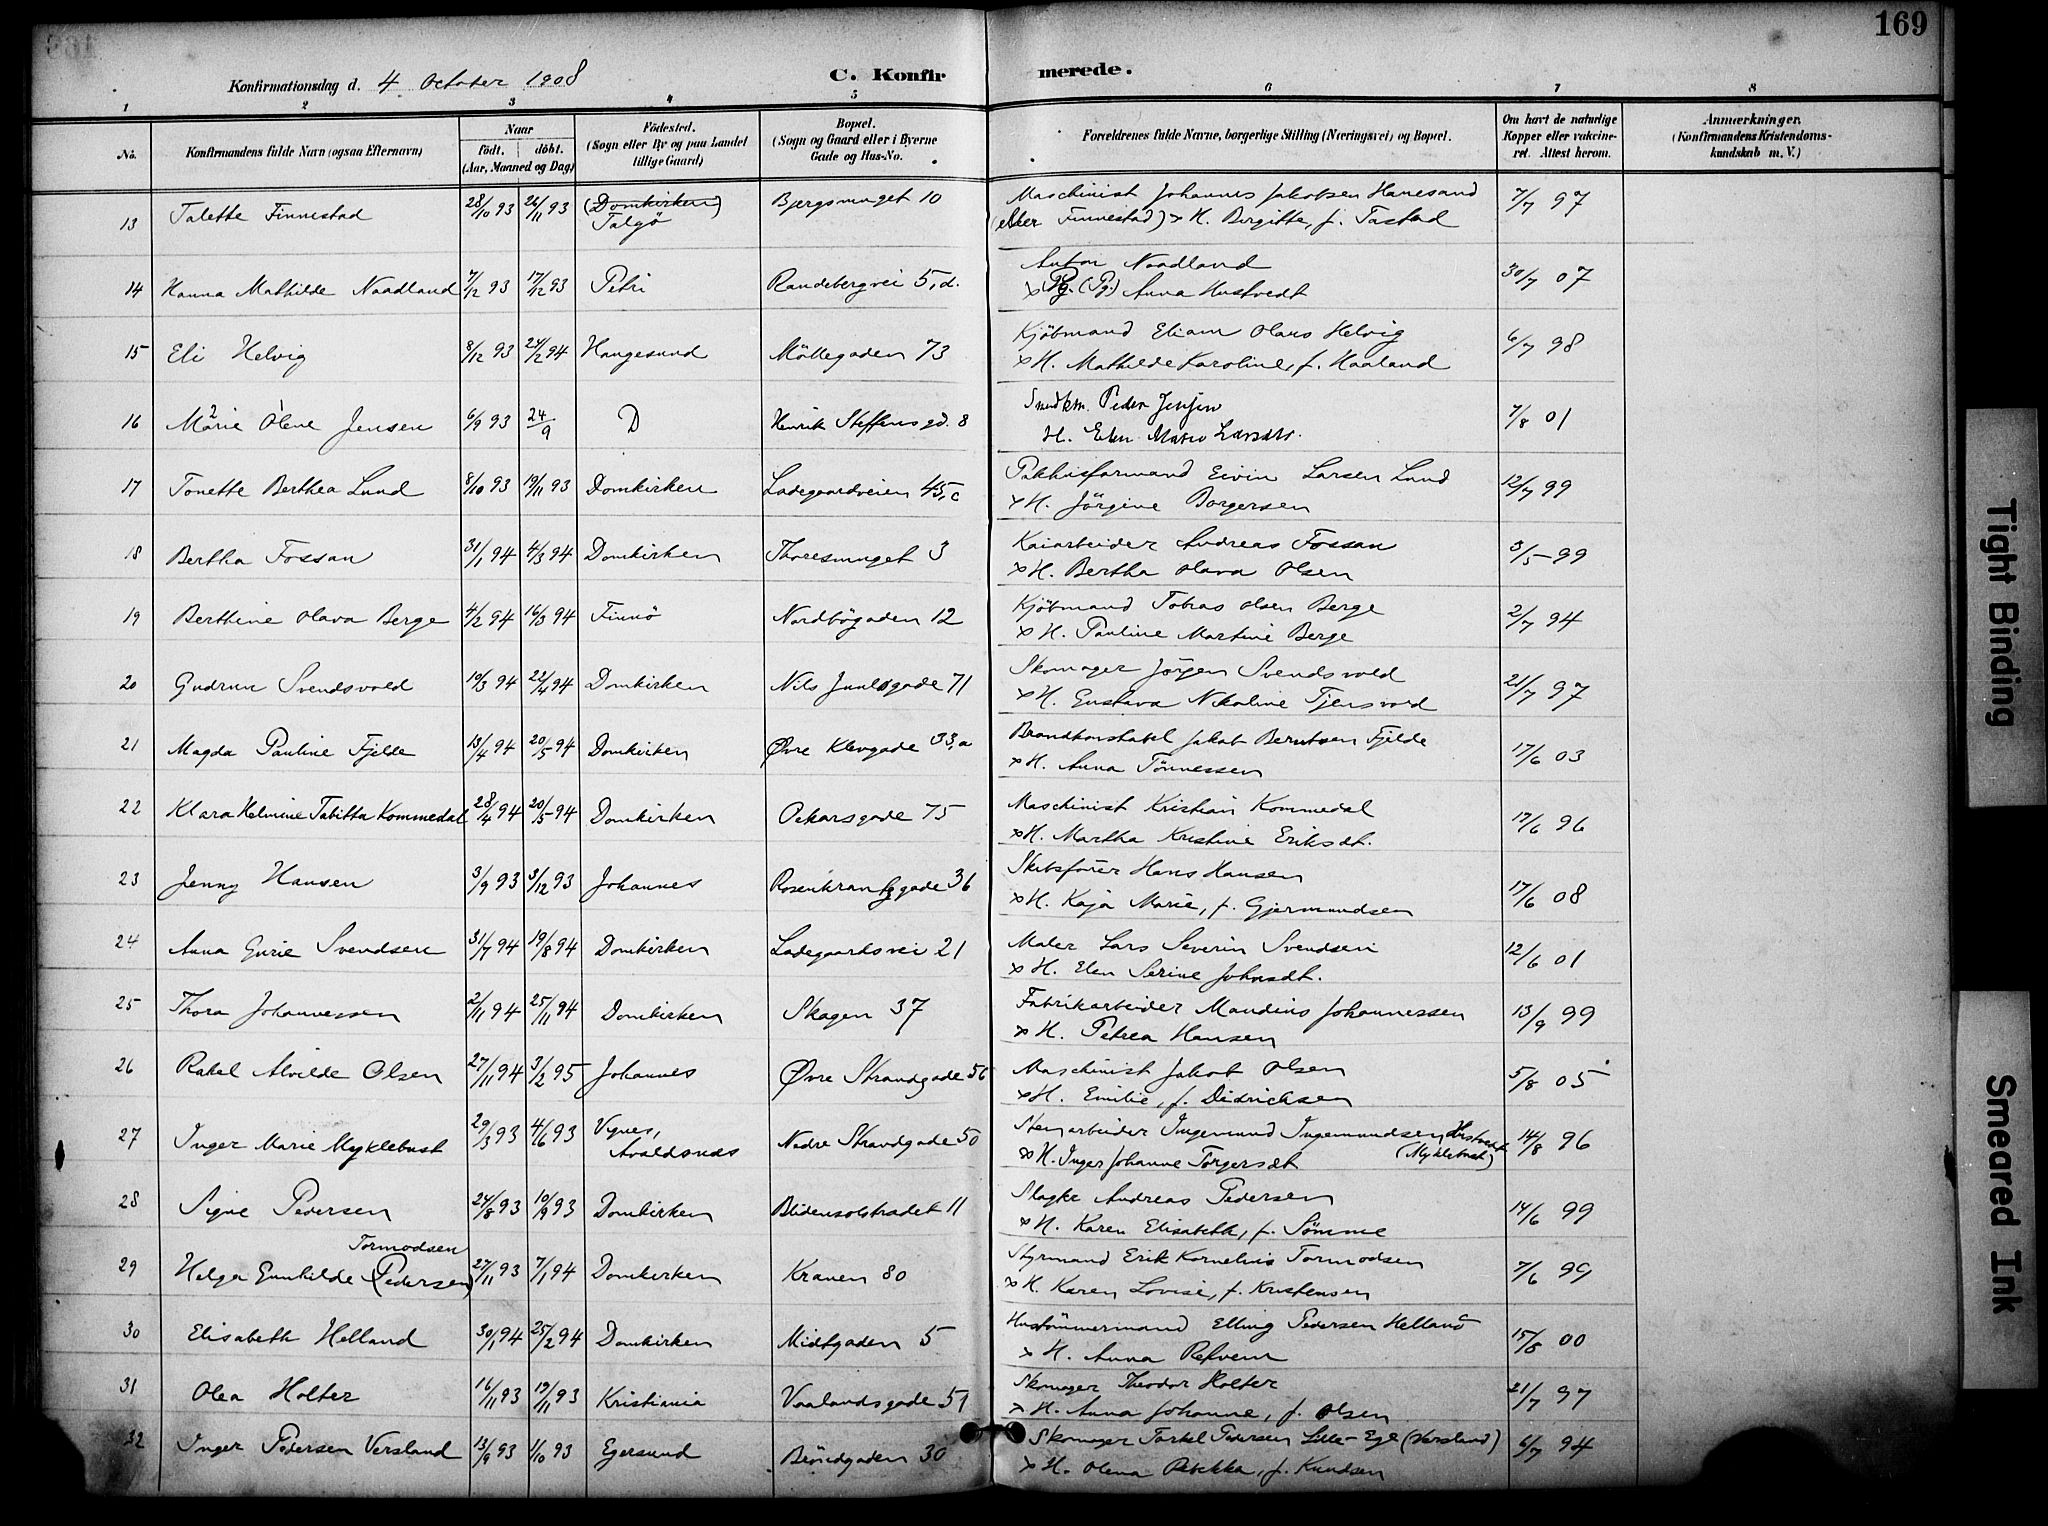 169
Konfirmationsdag d. 4 October 1908
C. Konfirmerede.
1 2 3 4 5 6 7 8
No. Konfirmandens fulde Navn (ogsaa Efternavn) Naar födt. döbt. (Aar, Maaned og Dag) Födested. (Sogn eller By og paa Landet tillige Gaard) Bopæl. (Sogn og Gaard eller i Byerne Gade og Hus-No. Forældrenes fulde Navne, borgerlige Stilling (Næringsvei) og Bopæl. Om havt de naturlige Kopper eller vakcineret. Attest herom. Anmærkninger. (Konfirmandens Kristendomskundskab m. V.)
13 Talette Finnestad 28/10 93 26/11 93 (Domkirken) Talgö Bjergsmuget 10 Maschinist Johannes Jakobsen Hanesand 7/7 97
(eller Finnestad) x H. Birgitte, f. Tastad
14 Hanna Mathilde Naadland 7/12 93 17/12 93 Petri Randebergvei 5,d. Anton Naadland 30/7 07
x Pg. (Pg.) Anna Hustvedt
15 Eli Helvig 8/12 93 24/2 94 Haugesund Möllegaden 73 Kjöbmand Eliam Olaus Helvig 6/7 98
x H. Mathilde Karoline, f. Haaland
16 Marie 2 Olene 1 Jensen 6/9 93 24/9 D Henrik Steffensgd. 8 Smedkm. Peder Jensen 7/8 01
H. Elen Marie
17 Tonette Berthea Lund 8/10 93 19/11 93 Domkirken Ladegaardveien 45,c Pakhusformand Eivin Larsen Lund 12/7 99
x H. Jörgine Borgersen
18 Bertha Fossan 31/1 94 4/3 94 Domkirken Thoresmuget 3 Kaiarbeider Andreas Fossan 3/5 99
x H. Bertha Olava Olsen
19 Berthine Olava Berge 4/2 94 16/3 94 Finnö Nordbögaden 12 Kjöbmand Tobias Olsen Berge 2/7 94
x H. Pauline Martine Berge
20 Gudrun Svendsvold 10/3 94 22/4 94 Domkirken Nils Juulsgade 71 Skomager Jörgen Svendsvold 21/7 97
x H. Gustava Nikoline Tjensvold
21 Magda Pauline Fjelde 13/4 94 20/5 94 Domkirken Øvre Klevgade 33,a Brandkonstabel Jakob Berntsen Fjelde 17/6 03
x H. Anna Tönnessen
22 Klara Helmine Tabitta Kommedal 28/4 94 20/5 94 Domkirken Oskarsgade 75 Maschinist Kristian Kommedal 17/6 96
x H. Martha Kristine Eriksdt.
23 Jenny Hansen 3/9 93 3/12 93 Johannes Rosenkrantzgade 36 Skibsförer Hans Hansen 17/6 08
x H. Kaja Marie, f. Gjermundsen
24 Anna Gurie Svendsen 31/7 94 19/8 94 Domkirken Ladegaardsvei 21 Maler Lars Severin Svendsen 12/6 01
x H. Elen Serine Johnsdt.
25 Thora Johannessen 2/11 94 25/11 94 Domkirken Skagen 37 Fabrikarbeider Maudius Johannessen 13/9 99
x H. Petrea Hansen
26 Rakel Alvilde Olsen 27/11 94 3/2 95 Johannes Øvre Strandgade 56 Maschinist Jakob Olsen 5/8 05
x H. Emilie, f. Didrichsen
27 Inger Marie Myklebust 29/3 93 4/6 93 Vignes, Avaldsnes Nedre Strandgade 50 Stenarbeider Ingemund Ingemundsen 14/8 96
x H. Inger Johanne Torgersdt (Myklebust)
28 Signe Pedersen 24/8 93 10/9 93 Domkirken Blidensolstrædet 11 Slagter Andreas Pedersen 14/6 99
x H. Karen Elisabeth, f. Sömme
29 Helga Gunhilde Tormodsen (Pedersen) 27/11 93 7/1 94 Domkirken Kranen 80 Styrmand Erik Kornelius Tormodsen 7/6 99
x H. Karen Lovise, f. Kristensen
30 Elisabeth Helland 30/1 94 25/2 94 Domkirken Midtgaden 5 Hustömmermand Elling Pedersen Helland 15/8 00
x H. Anna Refvem
31 Olea Holter 16/11 93 19/11 93 Kristiania Vaalandsgade 51 Skomager Theodor Holter 21/7 97
x H. Anna Johanne, f. Olsen
32 Inger Pedersen Versland 13/9 93 1/10 93 Egersund Bröndgaden 30 Skomager Torkel Pedersen Lille-Ege (Versland) 6/7 94
x H. Olena Rebekka, f. Knudsen
Tight Binding
Smeared Ink